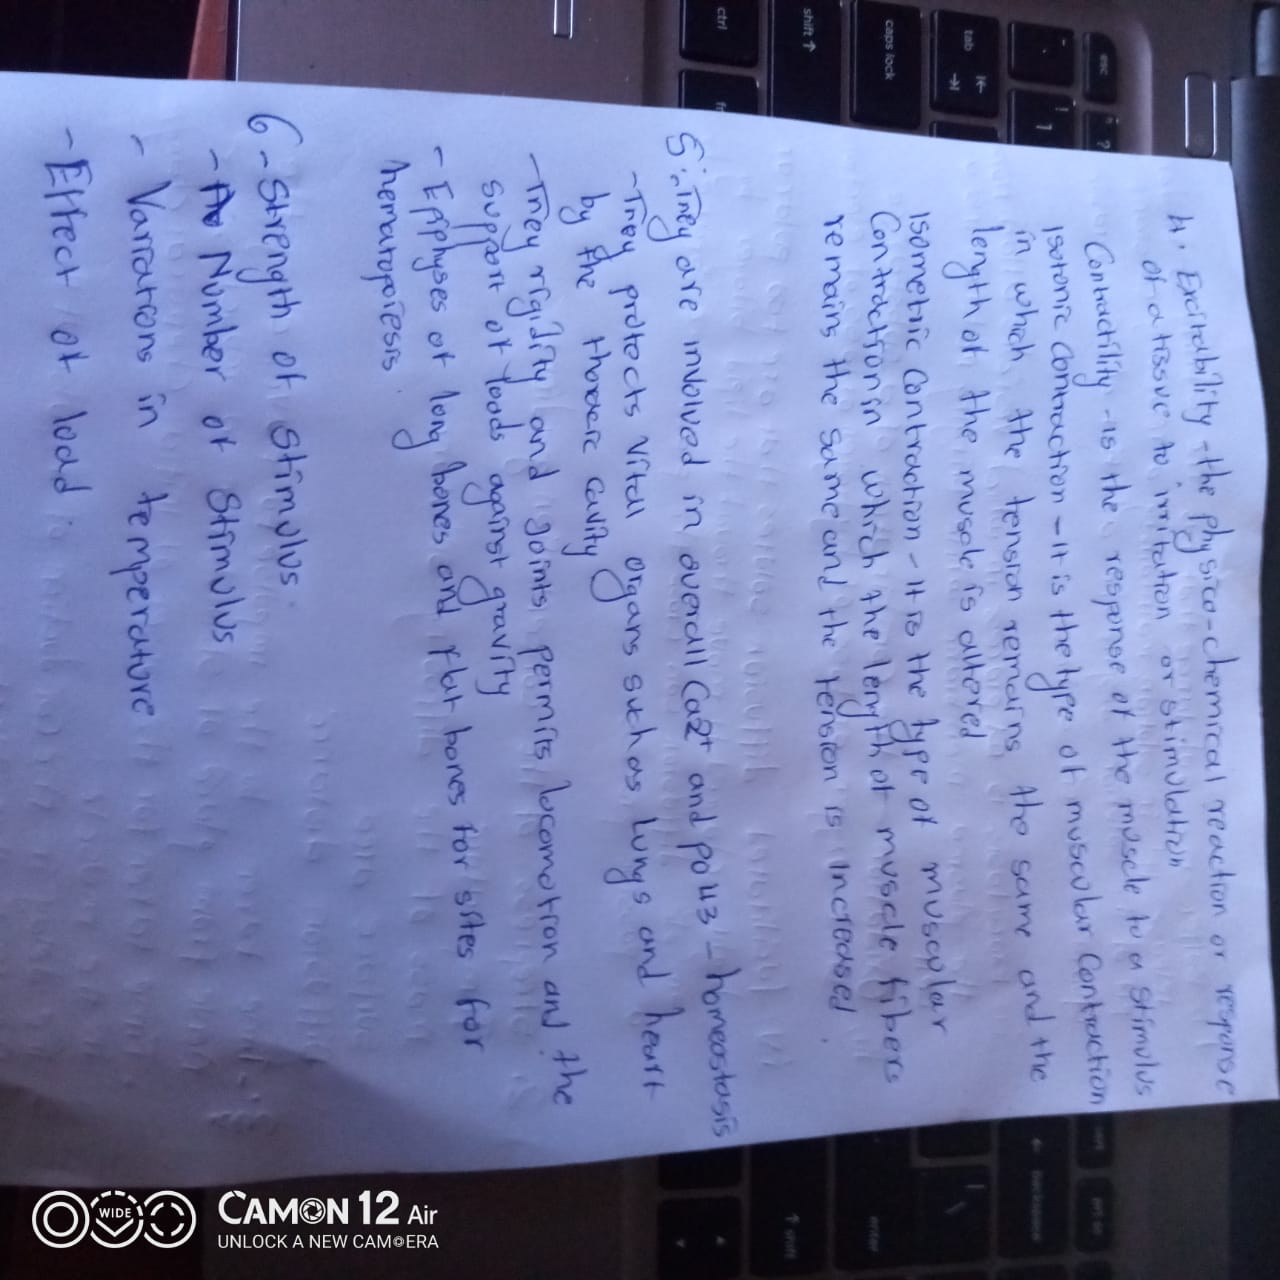 4. Excitability - the physico-chemical reaction or response
of a tissue to irritation or stimulation
Contractility - is the response of the muscle to a stimulus
Isotonic contraction - It is the type of muscular contraction
in which the tension remains the same and the
length of the muscle is altered
Isometric Contraction - It is the type of muscular
Contraction in which the length of muscle fibers
remains the same and the tension is increased.
5. They are involved in overall Ca2+ and po43- homeostasis
- They protects vital organs such as lungs and heart
by the thoracic cavity
- They rigidity and joints permits locomotion and the
support of loads against gravity
- Epiphyses of long bones and flat bones for sites for
hematopoiesis.
6 - Strength of stimulus.
- Number of Stimulus
- Variations in temperature
- Effect of load
esc
tab
caps lock
shift
ctrl
1
?
enter
shift
CAMON 12 Air
UNLOCK A NEW CAMERA
WIDE